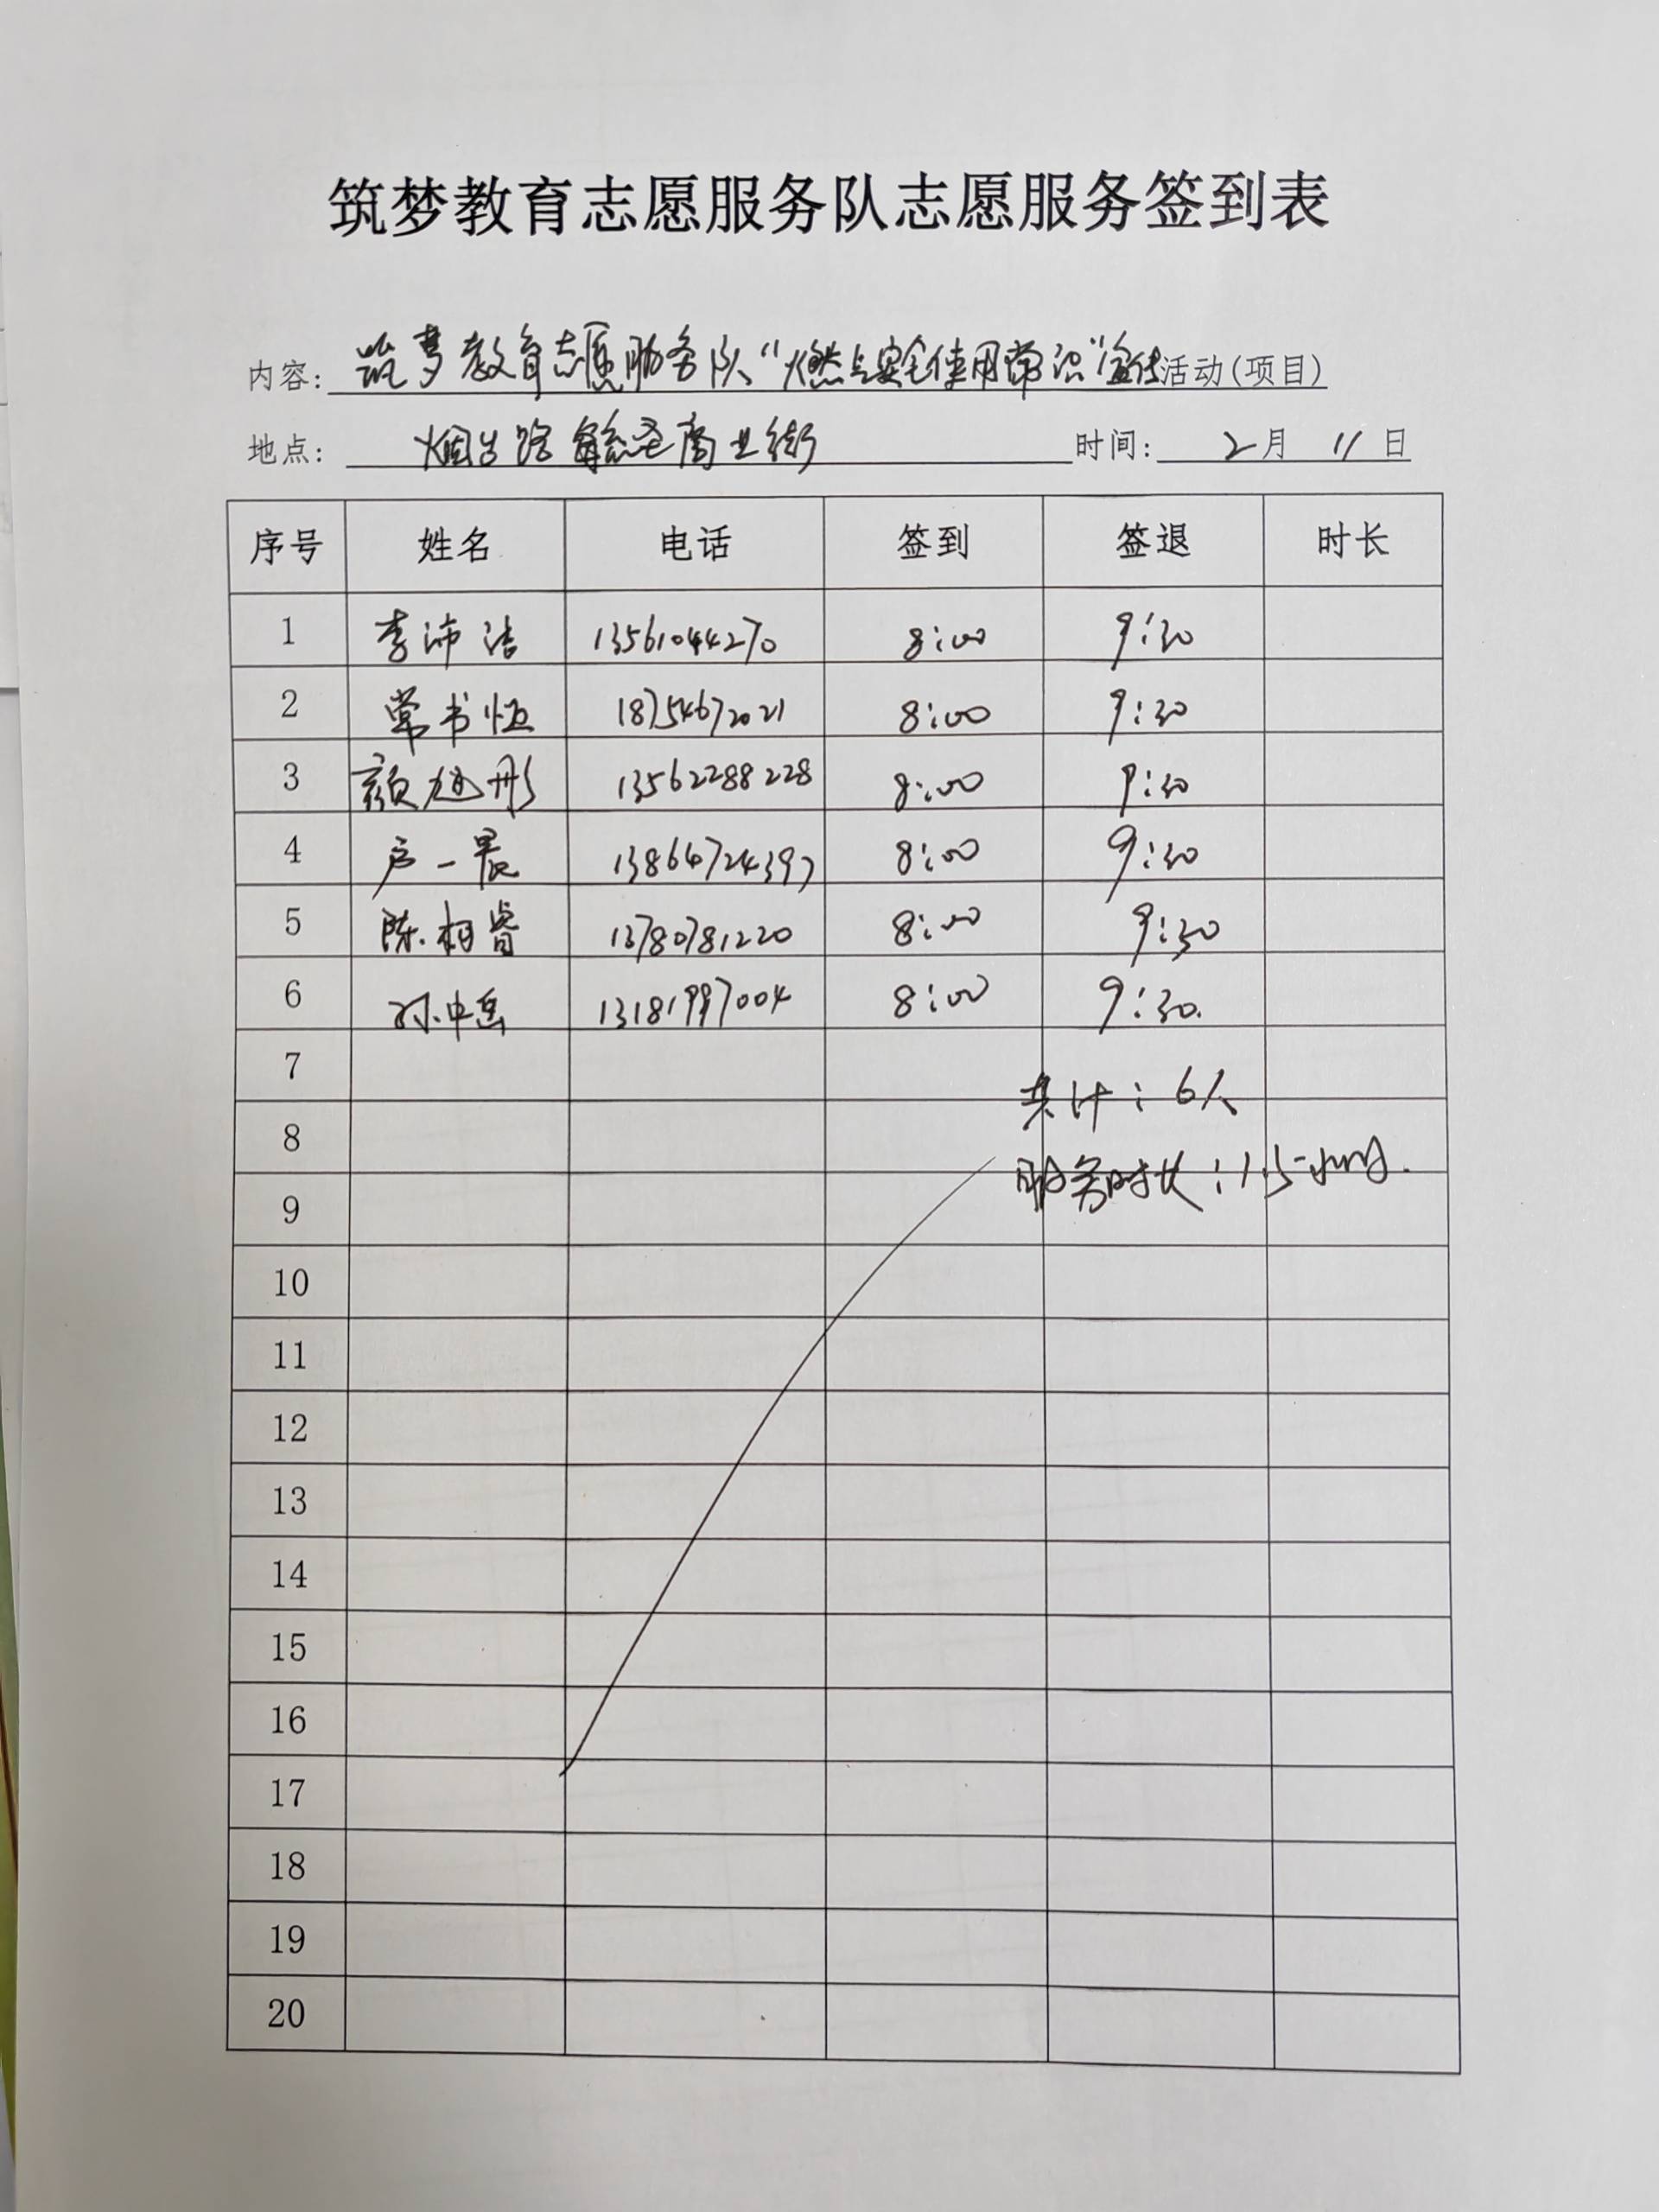 筑梦教育志愿服务队志愿服务签到表
内容: 筑梦教育志愿服务队“燃气安全使用常识”宣传活动(项目)
地点: 烟台路 商业街 时间: 2月11日
序号 姓名 电话 签到 签退 时长
1 李沛洁 13561044270 8:00 9:30
2 常书恒 18754672021 8:00 9:30
3 颜 彤 13562288228 8:00 9:30
4 卢一晨 13864724397 8:00 9:30
5 陈相睿 13780781220 8:00 9:30
6 孙中岳 13181997004 8:00 9:30.
7
共计:6人
8
服务时长:1.5小时.
9
10
11
12
13
14
15
16
17
18
19
20